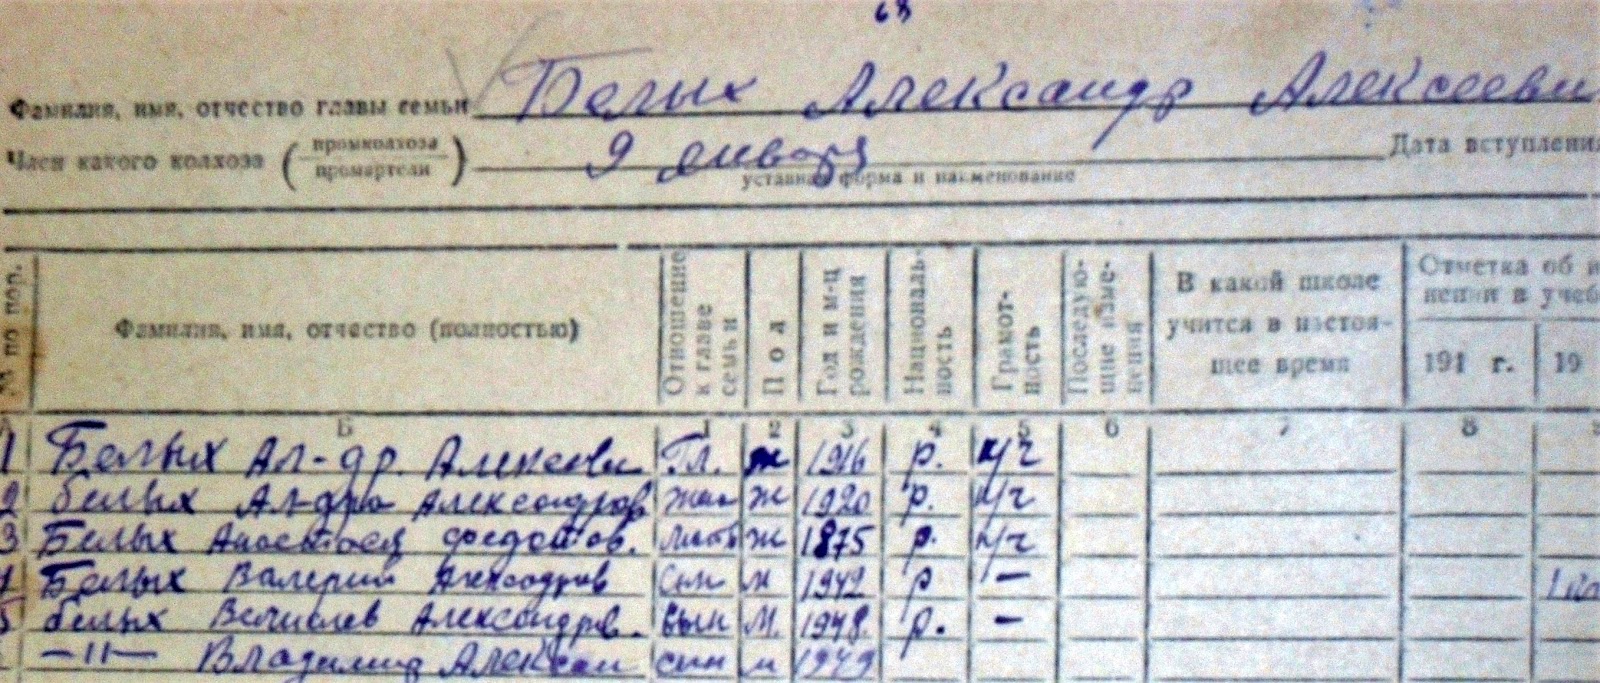 68
Фамилия, имя, отчество главы семьи Белых Александр Алексееви
Член какого колхоза (промколхоза / промартели) 9 января Дата вступления
уставная форма и наименование
№ по пор. Фамилия, имя, отчество (полностью) Отношение к главе семьи Пол Год и м-ц рождения Националь-ность Грамот-ность Последую-щие изме-нения В какой школе учится в настоя-щее время Отметка об и
нении в учеб
191 г. 19
А Б 1 2 3 4 5 6 7 8 9
1 Белых Ал-др. Алексееви Гл. м 1916 р. н/г
2 белых Ал-дра Александров жен ж 1920 р. н/г
3 Белых Анастасея Федотов. мать ж 1875 р. н/г
4 Белых Валерий Александров сын м 1942 р —
5 белых Александров. сын м. 1948. р. —
—"— Владимир Алексан сын м 1949